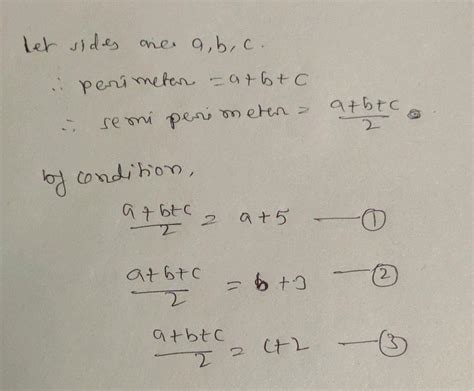 Let sides are a, b, c.
∴ perimeter = a+b+c
∴ semi perimeter = (a+b+c)/2.
by condition,
(a+b+c)/2 = a+5 —— ①
(a+b+c)/2 = b+3 —— ②
(a+b+c)/2 = c+2 —— ③